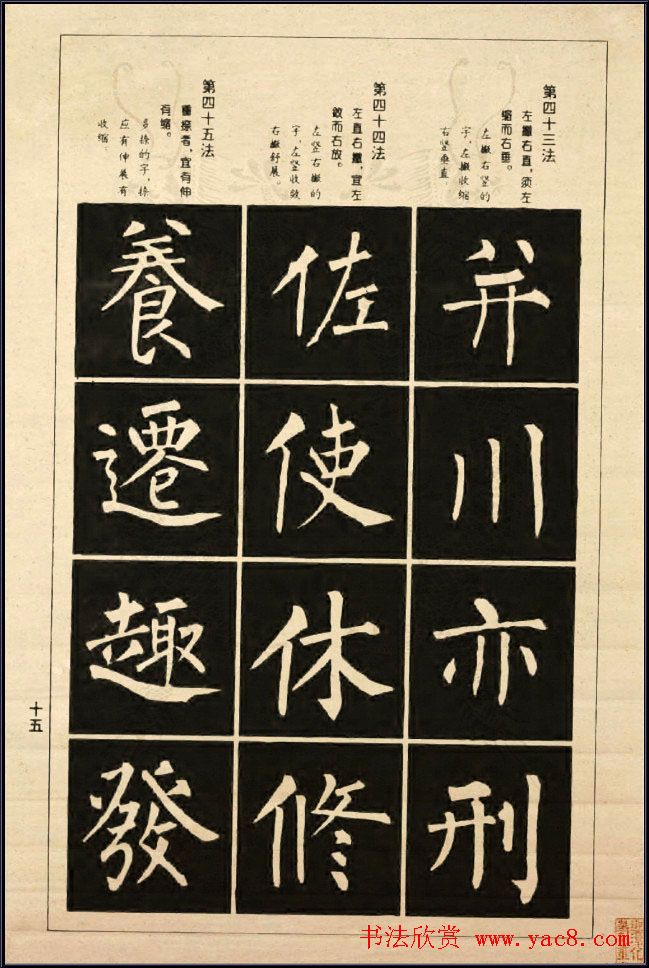 第四十三法
左撇右直，须左
缩而右垂。
左撇右竖的
字，左撇收缩，
右竖垂直。
并
川
亦
刑
第四十四法
左直右撇，宜左
敛而右放。
左竖右撇的
字，左竖收敛，
右撇舒展。
佐
使
休
修
第四十五法
重捺者，宜有伸
有缩。
多捺的字，捺
应有伸展有
收缩。
養
遷
趣
發
十五
书法欣赏 www.yac8.com